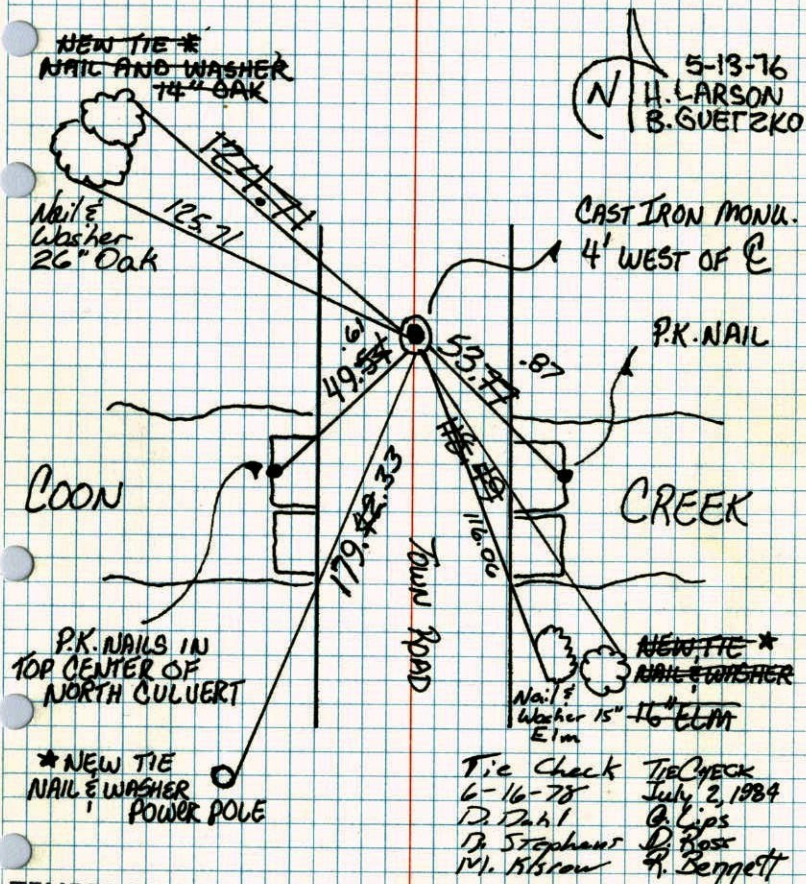 NEW TIE *
NAIL AND WASHER
14" OAK
N
5-13-76
H. LARSON
B. GUETZKO
124.71
125.71
Nail &
Washer
26" Oak
CAST IRON MONU.
4' WEST OF ℄
P.K. NAIL
.61
49.54
53.77
.87
COON
CREEK
179.
.33
116.06
TOWN ROAD
P.K. NAILS IN
TOP CENTER OF
NORTH CULVERT
NEW TIE *
NAIL & WASHER
16" ELM
Nail &
Washer 15"
Elm
* NEW TIE
NAIL & WASHER
POWER POLE
Tie Check
6-16-78
D. Dahl
D. Stephens
M.
TIE CHECK
July 2, 1984
G. Lips
D. Ross
R. Bennett